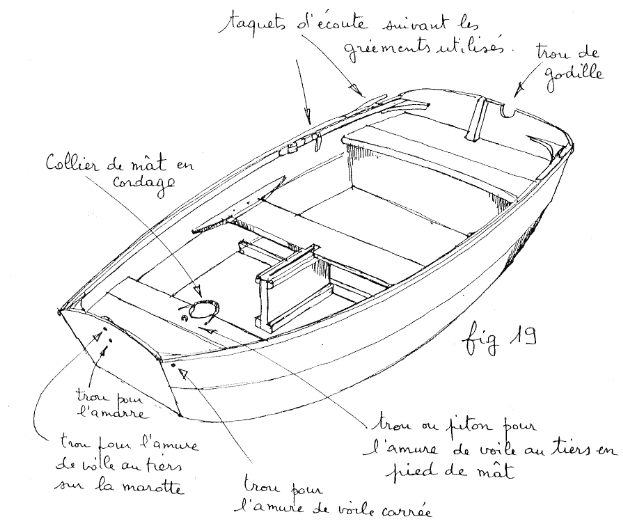 taquets d'écoute suivant les
gréements utilisés.
trou de
godille
Collier de mât en
cordage
fig 19
trou pour
l'amarre
trou pour l'amure
de voile au tiers
sur la marotte
trou pour
l'amure de voile carrée
trou ou piton pour
l'amure de voile au tiers en
pied de mât